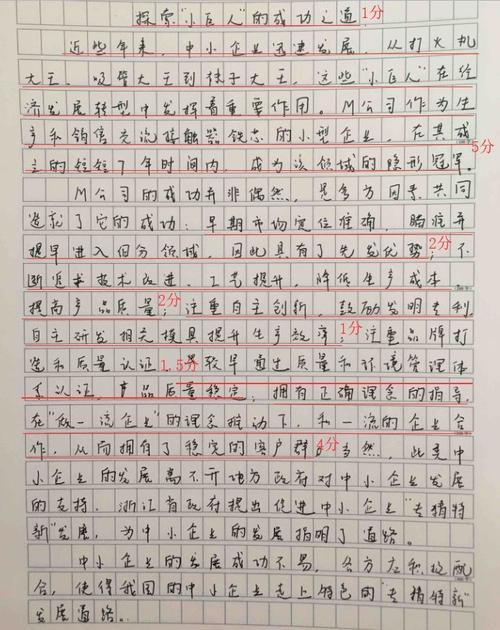 探索“小巨人”的成功之道 1分
近些年来，中小企业迅速发展，从打火机
大王、吸管大王到袜子大王，这些“小巨人”在经
济发展转型中发挥着重要作用。M公司作为生
产和销售交流接触器铁芯的小型企业，在其成
立的短短7年时间内，成为该领域的隐形冠军。 5分
M公司的成功并非偶然，是多方因素共同
造就了它的成功：早期市场定位准确，瞄准并
提早进入细分领域，因此具有了先发优势；2分 不
断追求技术改进、工艺提升，降低生产成本
提高产品质量；2分 注重自主创新，鼓励发明专利，
自主研发相关模具提升生产效率；1分 注重品牌打
造和质量认证，1.5分 较早通过质量和环境管理体
系认证，产品质量稳定；拥有正确理念的指导，
在“做一流企业”的理念推动下，和一流的企业合
作，从而拥有了稳定的客户群。4分 当然，此类中
小企业的发展离不开地方政府对中小企业发展
的支持。浙江省政府提出促进中小企业“专精特
新”发展，为中小企业的发展指明了道路。
中小企业的发展成功不易，各方左和投配
合，使得我国的中小企业走上特色的“专精特新”
发展道路。